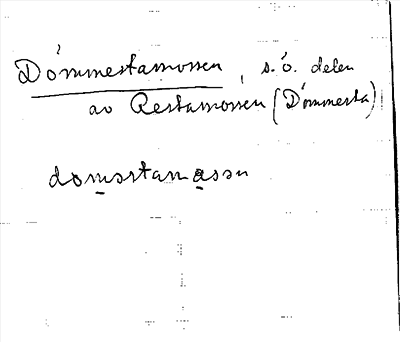 Dómmestamossen, s.ö. delen
av Restamossen (Dómmesta)
doməstamɑsən